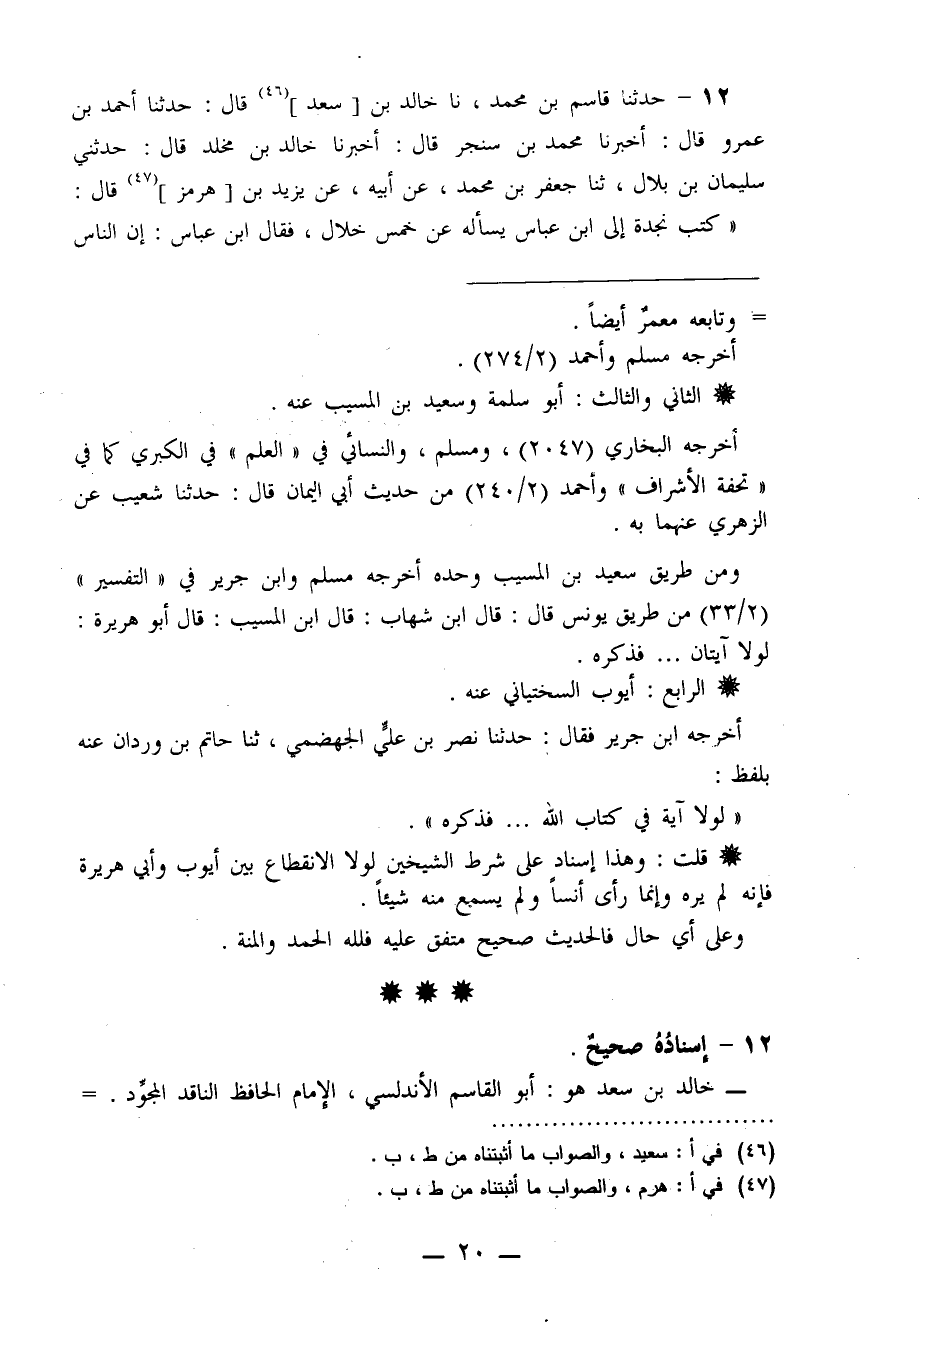 ١٢ – حدثنا قاسم بن محمد ، نا خالد بن [ سعد ](٤٦) قال : حدثنا أحمد بن
عمرو قال : أخبرنا محمد بن سنجر قال : أخبرنا خالد بن مخلد قال : حدثني
سليمان بن بلال ، ثنا جعفر بن محمد ، عن أبيه ، عن يزيد بن [ هرمز ](٤٧) قال :
« كتب نجدة إلى ابن عباس يسأله عن خمس خلال ، فقال ابن عباس : إن الناس
= وتابعه معمرٌ أيضاً .
أخرجه مسلم وأحمد (٢٧٤/٢) .
✹ الثاني والثالث : أبو سلمة وسعيد بن المسيب عنه .
أخرجه البخاري (٢٠٤٧) ، ومسلم ، والنسائي في « العلم » في الكبري كما في
« تحفة الأشراف » وأحمد (٢٤٠/٢) من حديث أبي اليمان قال : حدثنا شعيب عن
الزهري عنهما به .
ومن طريق سعيد بن المسيب وحده أخرجه مسلم وابن جرير في « التفسير »
(٣٣/٢) من طريق يونس قال : قال ابن شهاب : قال ابن المسيب : قال أبو هريرة :
لولا آيتان ... فذكره .
✹ الرابع : أيوب السختياني عنه .
أخرجه ابن جرير فقال : حدثنا نصر بن عليٍّ الجهضمي ، ثنا حاتم بن وردان عنه
بلفظ :
« لولا آية في كتاب الله ... فذكره » .
✹ قلت : وهذا إسناد على شرط الشيخين لولا الانقطاع بين أيوب وأبي هريرة
فإنه لم يره وإنما رأى أنساً ولم يسمع منه شيئاً .
وعلى أي حال فالحديث صحيح متفق عليه فلله الحمد والمنة .
✹ ✹ ✹
١٢ – إسنادُهُ صحيحٌ .
ــ خالد بن سعد هو : أبو القاسم الأندلسي ، الإمام الحافظ الناقد المجوِّد . =
(٤٦) في أ : سعيد ، والصواب ما أثبتناه من ط ، ب .
(٤٧) في أ : هرم ، والصواب ما أثبتناه من ط ، ب .
— ٢٠ —